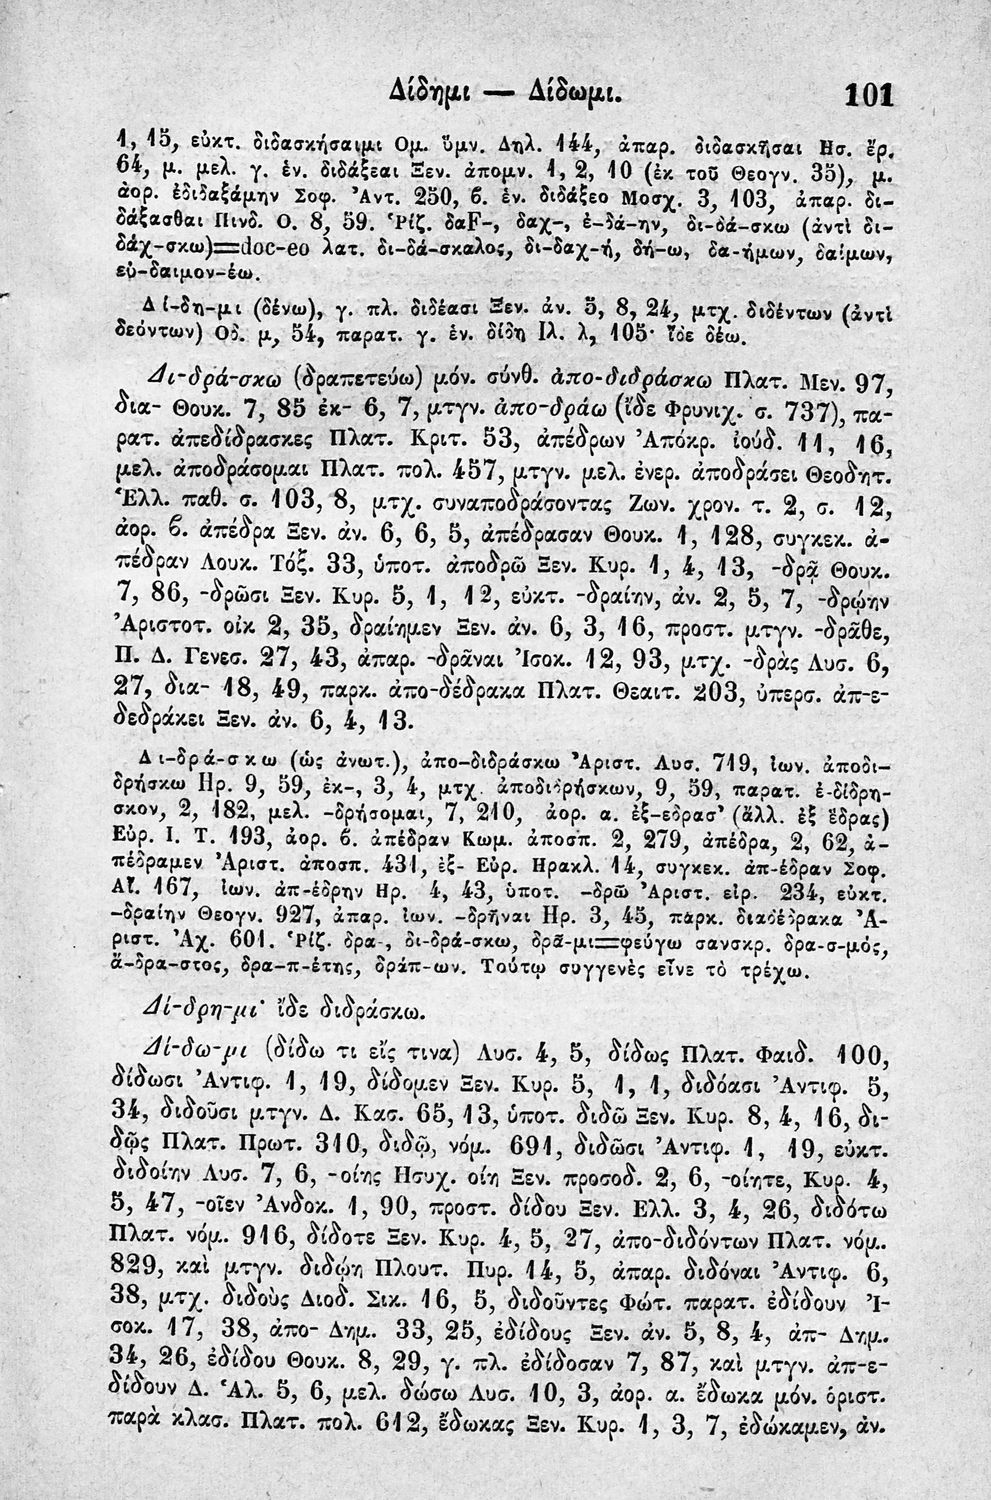 Δίδημι — Δίδωμι. 101
1, 15, εὐκτ. διδασκήσαιμι Ομ. ὕμν. Δηλ. 144, ἀπαρ. διδασκῆσαι Ησ. ἔρ.
64, μ. μελ. γ. ἑν. διδάξεαι Ξεν. ἀπομν. 1, 2, 10 (ἐκ τοῦ Θεογν. 35), μ.
ἀορ. ἐδιδαξάμην Σοφ. Ἀντ. 250, ϐ. ἑν. διδάξεο Μοσχ. 3, 103, ἀπαρ. δι-
δάξασθαι Πινδ. Ο. 8, 59. Ῥίζ. δαF-, δαχ-, ἐ-δά-ην, δι-δά-σκω (ἀντὶ δι-
δάχ-σκω)=doc-eo λατ. δι-δά-σκαλος, δι-δαχ-ή, δή-ω, δα-ήμων, δαίμων,
εὐ-δαιμον-έω.
Δί-δη-μι (δένω), γ. πλ. διδέασι Ξεν. ἀν. 5, 8, 24, μτχ. διδέντων (ἀντὶ
δεόντων) Οδ. μ, 54, παρατ. γ. ἑν. δίδη Ιλ. λ, 105· ἴδε δέω.
Δι-δρά-σκω (δραπετεύω) μόν. σύνθ. ἀπο-διδράσκω Πλατ. Μεν. 97,
δια- Θουκ. 7, 85 ἐκ- 6, 7, μτγν. ἀπο-δράω (ἴδε Φρυνιχ. σ. 737), πα-
ρατ. ἀπεδίδρασκες Πλατ. Κριτ. 53, ἀπέδρων Ἀπόκρ. ἰούδ. 11, 16,
μελ. ἀποδράσομαι Πλατ. πολ. 457, μτγν. μελ. ἐνερ. ἀποδράσει Θεοδητ.
Ἑλλ. παθ. σ. 103, 8, μτχ. συναποδράσοντας Ζων. χρον. τ. 2, σ. 12,
ἀορ. ϐ. ἀπέδρα Ξεν. ἀν. 6, 6, 5, ἀπέδρασαν Θουκ. 1, 128, συγκεκ. ἀ-
πέδραν Λουκ. Τόξ. 33, ὑποτ. ἀποδρῶ Ξεν. Κυρ. 1, 4, 13, -δρᾷ Θουκ.
7, 86, -δρῶσι Ξεν. Κυρ. 5, 1, 12, εὐκτ. -δραίην, ἀν. 2, 5, 7, -δρῴην
Ἀριστοτ. οἰκ 2, 35, δραίημεν Ξεν. ἀν. 6, 3, 16, προστ. μτγν. -δρᾶθε,
Π. Δ. Γενεσ. 27, 43, ἀπαρ. -δρᾶναι Ἰσοκ. 12, 93, μτχ. -δρὰς Λυσ. 6,
27, δια- 18, 49, παρκ. ἀπο-δέδρακα Πλατ. Θεαιτ. 203, ὑπερσ. ἀπ-ε-
δεδράκει Ξεν. ἀν. 6, 4, 13.
Δι-δρά-σκω (ὡς ἀνωτ.), ἀπο-διδράσκω Ἀριστ. Λυσ. 719, ἰων. ἀποδι-
δρήσκω Ηρ. 9, 59, ἐκ-, 3, 4, μτχ. ἀποδιδρήσκων, 9, 59, παρατ. ἐ-δίδρη-
σκον, 2, 182, μελ. -δρήσομαι, 7, 210, ἀορ. α. ἐξ-εδρασ' (ἄλλ. ἐξ ἕδρας)
Εὐρ. Ι. Τ. 193, ἀορ. ϐ. ἀπέδραν Κωμ. ἀποσπ. 2, 279, ἀπέδρα, 2, 62, ἀ-
πέδραμεν Ἀριστ. ἀποσπ. 431, ἐξ- Εὐρ. Ηρακλ. 14, συγκεκ. ἀπ-έδραν Σοφ.
Αἴ. 167, ἰων. ἀπ-έδρην Ηρ. 4, 43, ὑποτ. -δρῶ Ἀριστ. εἰρ. 234, εὐκτ.
-δραίην Θεογν. 927, ἀπαρ. ἰων. -δρῆναι Ηρ. 3, 45, παρκ. διαδέδρακα Ἀ-
ριστ. Ἀχ. 601. Ῥίζ. δρα-, δι-δρά-σκω, δρᾶ-μι=φεύγω σανσκρ. δρα-σ-μός,
ἄ-δρα-στος, δρα-π-έτης, δράπ-ων. Τούτῳ συγγενὲς εἶνε τὸ τρέχω.
Δί-δρη-μι· ἴδε διδράσκω.
Δί-δω-μι (δίδω τι εἴς τινα) Λυσ. 4, 5, δίδως Πλατ. Φαιδ. 100,
δίδωσι Ἀντιφ. 1, 19, δίδομεν Ξεν. Κυρ. 5, 1, 1, διδόασι Ἀντιφ. 5,
34, διδοῦσι μτγν. Δ. Κασ. 65, 13, ὑποτ. διδῶ Ξεν. Κυρ. 8, 4, 16, δι-
δῷς Πλατ. Πρωτ. 310, διδῷ, νόμ. 691, διδῶσι Ἀντιφ. 1, 19, εὐκτ.
διδοίην Λυσ. 7, 6, -οίης Ησυχ. οίη Ξεν. προσοδ. 2, 6, -οίητε, Κυρ. 4,
5, 47, -οῖεν Ἀνδοκ. 1, 90, προστ. δίδου Ξεν. Ελλ. 3, 4, 26, διδότω
Πλατ. νόμ. 916, δίδοτε Ξεν. Κυρ. 4, 5, 27, ἀπο-διδόντων Πλατ. νόμ.
829, καὶ μτγν. διδῴη Πλουτ. Πυρ. 14, 5, ἀπαρ. διδόναι Ἀντιφ. 6,
38, μτχ. διδοὺς Διοδ. Σικ. 16, 5, διδοῦντες Φώτ. παρατ. ἐδίδουν Ἰ-
σοκ. 17, 38, ἀπο- Δημ. 33, 25, ἐδίδους Ξεν. ἀν. 5, 8, 4, ἀπ- Δημ.
34, 26, ἐδίδου Θουκ. 8, 29, γ. πλ. ἐδίδοσαν 7, 87, καὶ μτγν. ἀπ-ε-
δίδουν Δ. Ἁλ. 5, 6, μελ. δώσω Λυσ. 10, 3, ἀορ. α. ἔδωκα μόν. ὁριστ.
παρὰ κλασ. Πλατ. πολ. 612, ἔδωκας Ξεν. Κυρ. 1, 3, 7, ἐδώκαμεν, ἀν.